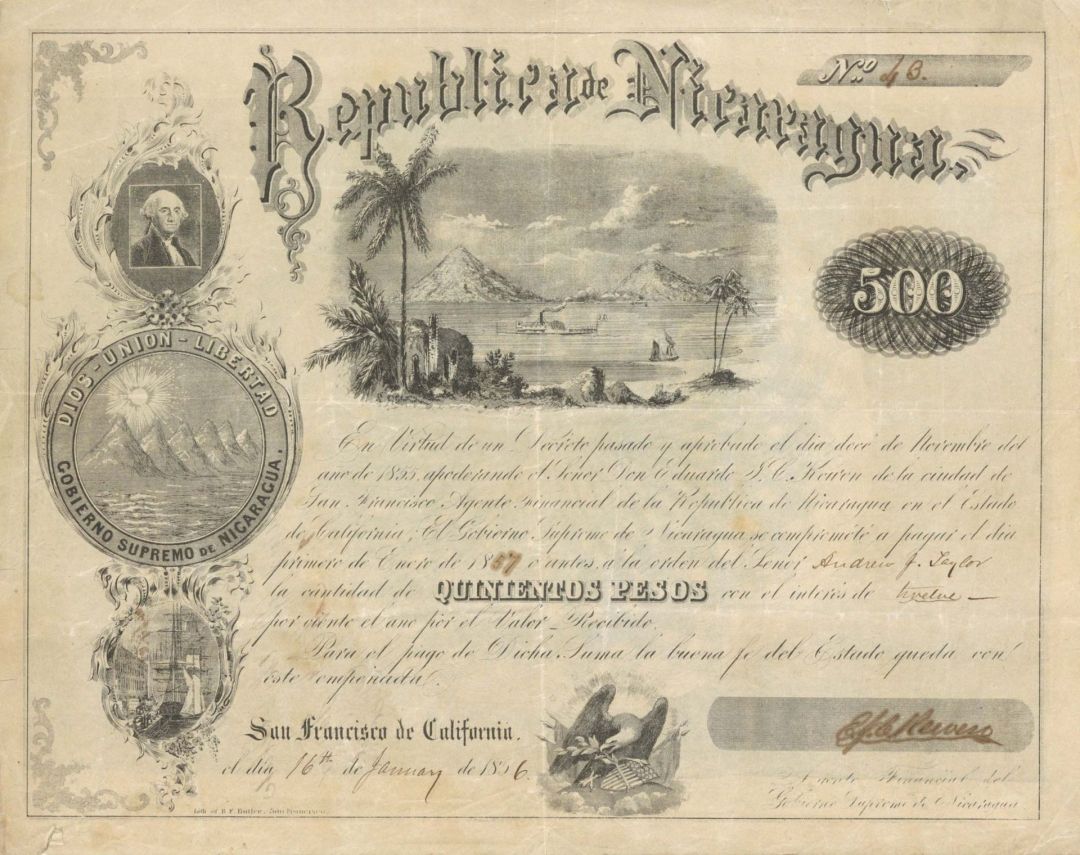 Republica de Nicaragua.
No. 43.
500
DIOS - UNION - LIBERTAD
GOBIERNO SUPREMO DE NICARAGUA.
En Virtud de un Decreto pasado y aprobado el dia doce de Novembre del
ano de 1855, apoderando el Señor Don Eduardo J. C. Kewen de la ciudad de
San Francisco Agente Financial de la Republica de Nicaragua en el Estado
de California; El Gobierno Supreme de Nicaragua se comprometé a pagar el dia
primero de Enero de 1857 o antes, a la orden del Señor Andrew J. Taylor
la cantidad de QUINIENTOS PESOS con el interes de twelve —
por ciento el ano por el Valor Recibido.
Para el pago de Dicha Suma la buena fe del Estado queda con
este empeñada.
San Francisco de California.
el dia 16th de January de 1856.
E. J. C. Kewen
Agente Financial del
Gobierno Supremo de Nicaragua
Lith of B. F. Butler, San Francisco.